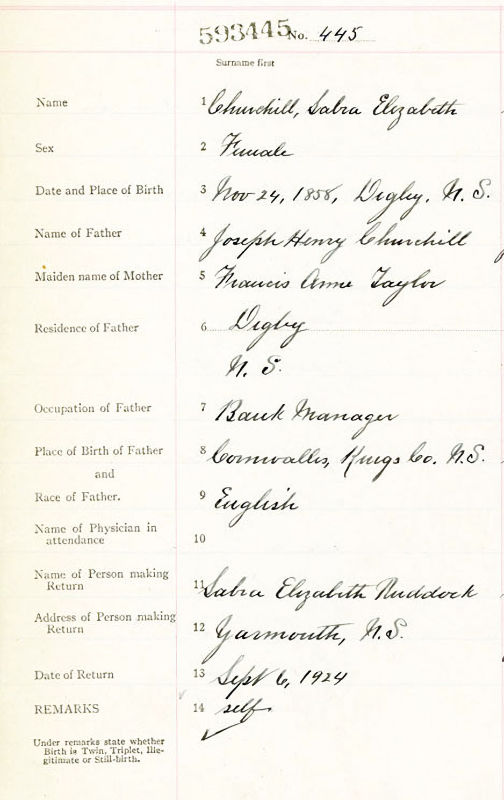 593445 No. 445
Surname first
Name 1 Churchill, Sabra Elizabeth
Sex 2 Female
Date and Place of Birth 3 Nov 24, 1858, Digby, N. S.
Name of Father 4 Joseph Henry Churchill
Maiden name of Mother 5 Francis Anne Taylor
Residence of Father 6 Digby
N. S.
Occupation of Father 7 Bank Manager
Place of Birth of Father 8 Cornwallis, Kings Co. N.S.
and
Race of Father. 9 English
Name of Physician in
attendance 10
Name of Person making
Return 11 Sabra Elizabeth Ruddock
Address of Person making
Return 12 Yarmouth, N.S.
Date of Return 13 Sept 6, 1924
REMARKS 14 self
Under remarks state whether
Birth is Twin, Triplet, Ille-
gitimate or Still-birth.